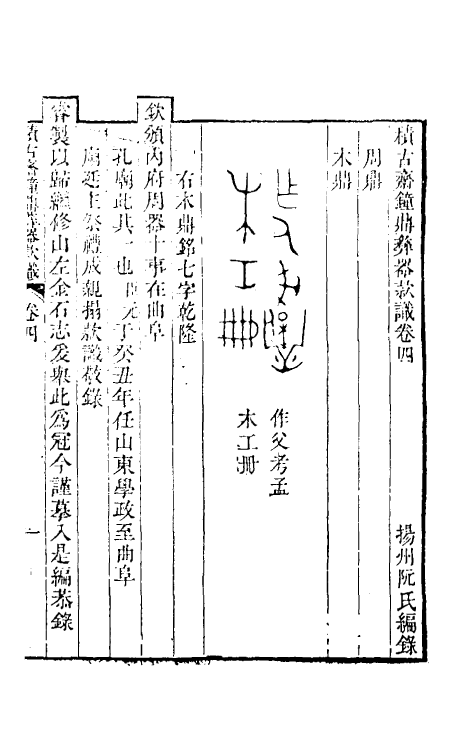 積古齋鐘鼎彝器款識卷四
揚州阮氏編錄
周鼎
木鼎
作父考孟
木工冊
右木鼎銘七字乾隆
欽頒內府周器十事在曲阜
孔廟此其一也元于癸丑年任山東學政至曲阜
廟延主祭禮成親搨款識敬錄
睿製以歸繼修山左金石志爰舉此為冠今謹摹入是編恭錄
積古齋鐘鼎彝器款識
卷四
一